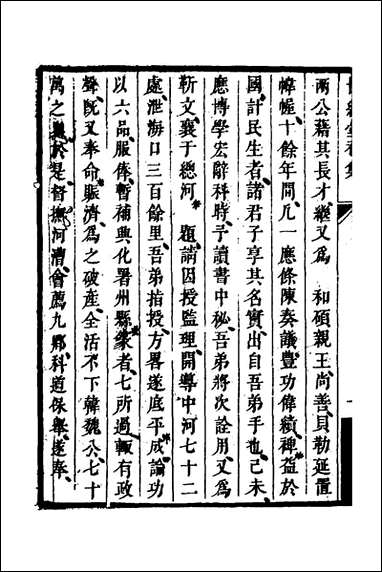 兩公藉其長才繼又爲　和碩親王尚善貝勒延置
幃幄十餘年間凡一應條陳奏議豐功偉績裨益於
國計民生者諸君子享其名實出自吾弟手也己未
應博學宏辭科時予讀書中秘吾弟將次詮用又爲
靳文襄于總河　題請因授監理開導中河七十二
處泄海口三百餘里吾弟指授方畧遂底平成論功
以六品服俸暫補興化署州縣篆者七所過輒有政
聲既又奉命賑濟爲之破産全活不下韓魏公七十
萬之奥於是督撫河漕會薦九鄉科道保舉遂奉